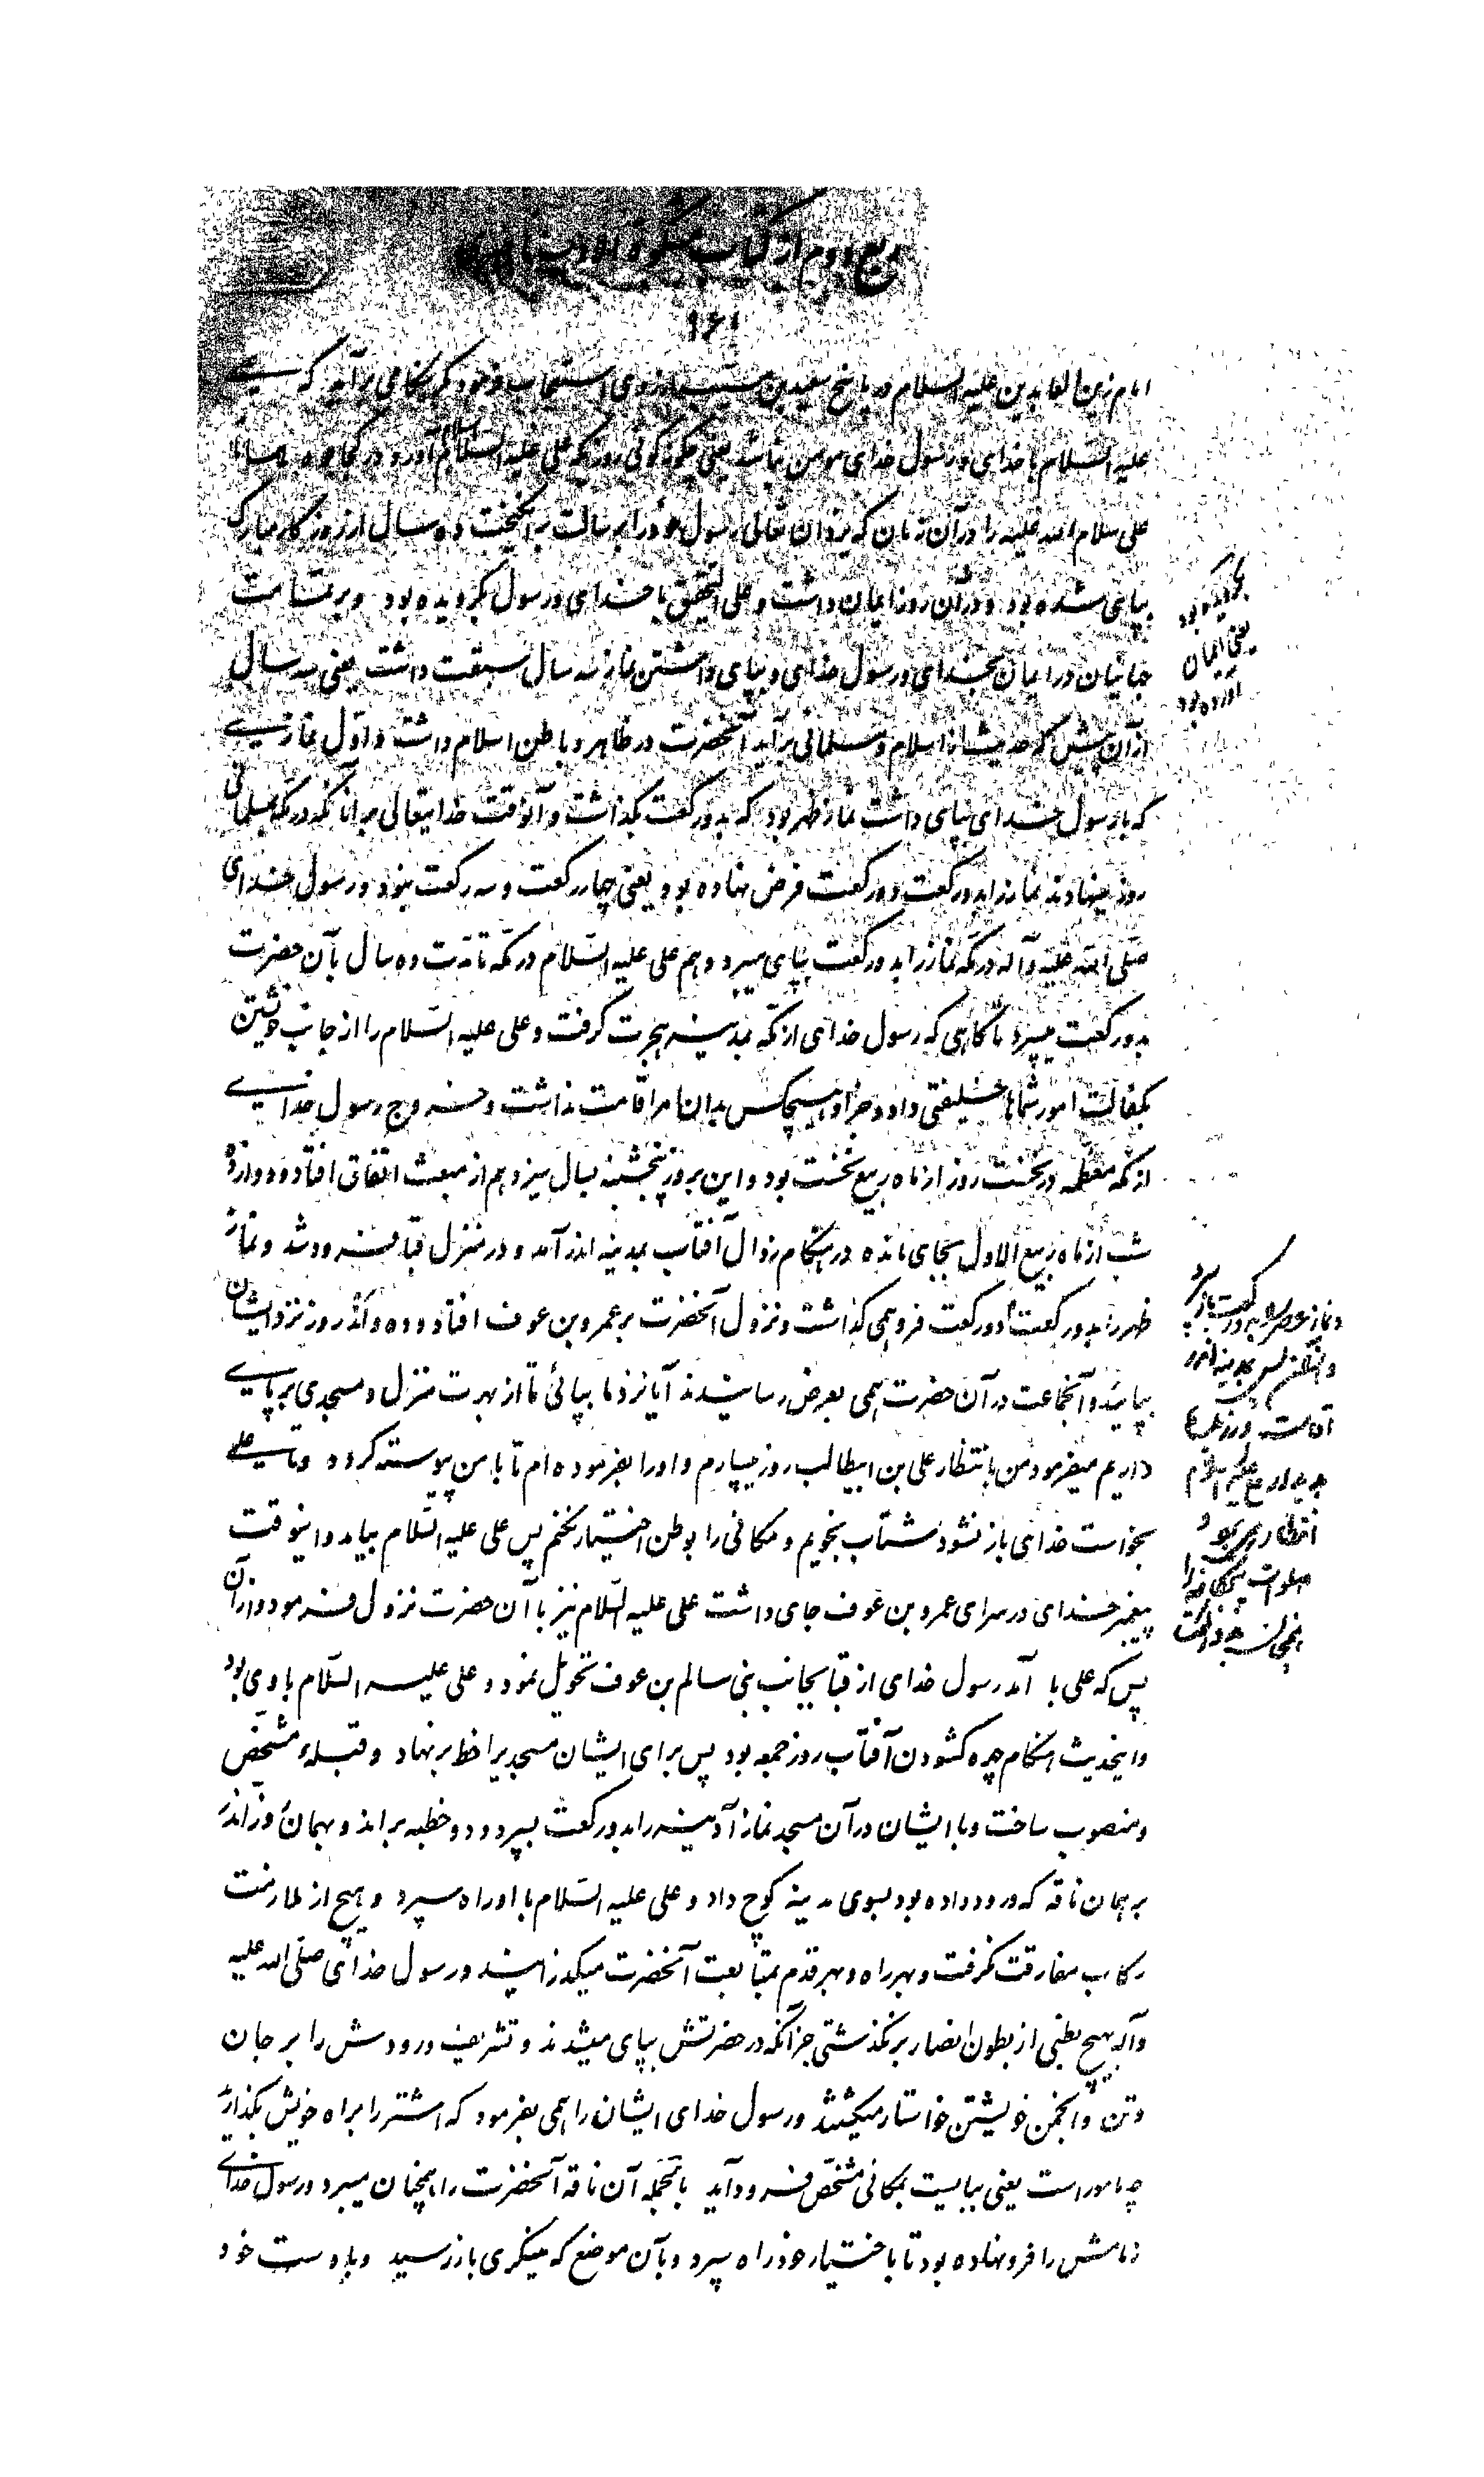 ربع دوم از کتاب مشکوة الادب ناصری
۱۶۱
امام زین العابدین علیه السلام در پاسخ سعید بن مسیب از روی استعجاب فرمود مگر هنگامی برآمد که
علیه السلام با خدای و رسول خدای مومن نباشد یعنی چگونه گوئی روزیکه علی علیه السلام اسلام آورد در کجا بود همانا
علی سلام الله علیه را در آن زمان که یزدان تعالی رسول خود را برسالت برانگیخت ده سال از روزگار مبارک
بپای شده بود و در آن روز ایمان داشت و علی التحقیق با خدای و رسول بگرویده بود و بر تمامت
جهانیان در ایمان بخدای و رسول خدای و بپای داشتن نماز سه سال سبقت داشت یعنی سه سال
از آن پیش که حدیث از اسلام و مسلمانی برآید آنحضرت در ظاهر و باطن اسلام داشت و اول نمازی
که با رسول خدای بپای داشت نماز ظهر بود که بدو رکعت بگذاشت و آنوقت خدایتعالی بر آنانکه در مکه بمسلمانی
روز مینهادند نماز را بدو رکعت دو رکعت فرض نهاده بود یعنی چهار رکعت و سه رکعت نبود و رسول خدای
صلی الله علیه و آله در مکه نماز را بدو رکعت بپای میبرد و هم علی علیه السلام در مکه تا مدت ده سال با آن حضرت
بدو رکعت میسپرد تا گاهی که رسول خدای از مکه بمدینه هجرت گرفت و علی علیه السلام را از جانب خویشتن
بکفالت امور خلیفتی داد و جز او هیچکس بدان امر اقامت نداشت و خروج رسول خدای
از مکه معظمه در نخست روز از ماه ربیع نخست بود و این بروز پنجشنبه بسال سیزدهم از مبعث اتفاق افتاد و دوازده
شب از ماه ربیع الاول بجای مانده در هنگام زوال آفتاب بمدینه اندر آمد و در منزل قبا فرود شد و نماز
ظهر را بدو رکعت دو رکعت فرو همی گذاشت و نزول آنحضرت بر عمرو بن عوف افتاد و ده و اند روز نزد ایشان
بپائید و آنجماعت در آن حضرت همی بعرض رسانیدند آیا نزد ما بپائی تا از بهرت منزل و مسجدی برپای
داریم میفرمود من بانتظار علی بن ابیطالب روز میسپارم و او را بفرموده ام تا با من پیوسته گردد و تا علی
بخواست خدای باز نشود شتاب نجویم و مکانی را بوطن اختیار نکنم پس علی علیه السلام بیامد و اینوقت
پیغمبر خدای در سرای عمرو بن عوف جای داشت علی علیه السلام نیز با آن حضرت نزول فرمود و از آن
پس که علی با آمد رسول خدای از قبا بجانب بنی سالم بن عوف تحویل نمود و علی علیه السلام با وی بود
و اینحدیث هنگام چهره گشودن آفتاب روز جمعه بود پس برای ایشان مسجدیرا خط بر نهاد و قبله مشخص
و منصوب ساخت و با ایشان در آن مسجد نماز آدینه را بدو رکعت بسپرد و دو خطبه براند و بهمان روز اندر
بر همان ناقه که ورود داده بود بسوی مدینه کوچ داد و علی علیه السلام با او راه سپرد و هیچ از ملازمت
رکاب مفارقت نگرفت و بهر راه و بهر قدم بمتابعت آنحضرت میگذرانید و رسول خدای صلی الله علیه
و آله بهیچ بطنی از بطون انصار بر نگذشتی جز آنکه در حضرتش بپای میشدند و تشریف ورودش را بر جان
و تن و انجمن خویشتن خواستار میگشتند و رسول خدای ایشان را همی بفرمود که اشتر را براه خویش بگذارید
چه مامور است یعنی ببایست بمکانی مشخص فرود آید بالجمله آن ناقه آنحضرت را همچنان میبرد و رسول خدای
زمامش را فرو نهاده بود تا باختیار خود راه سپرد و بآن موضع که مینگری باز رسید و با دست خود
بگرویده بود
یعنی ایمان
آورده بود
و نماز عصر را بدو رکعت بپای برد